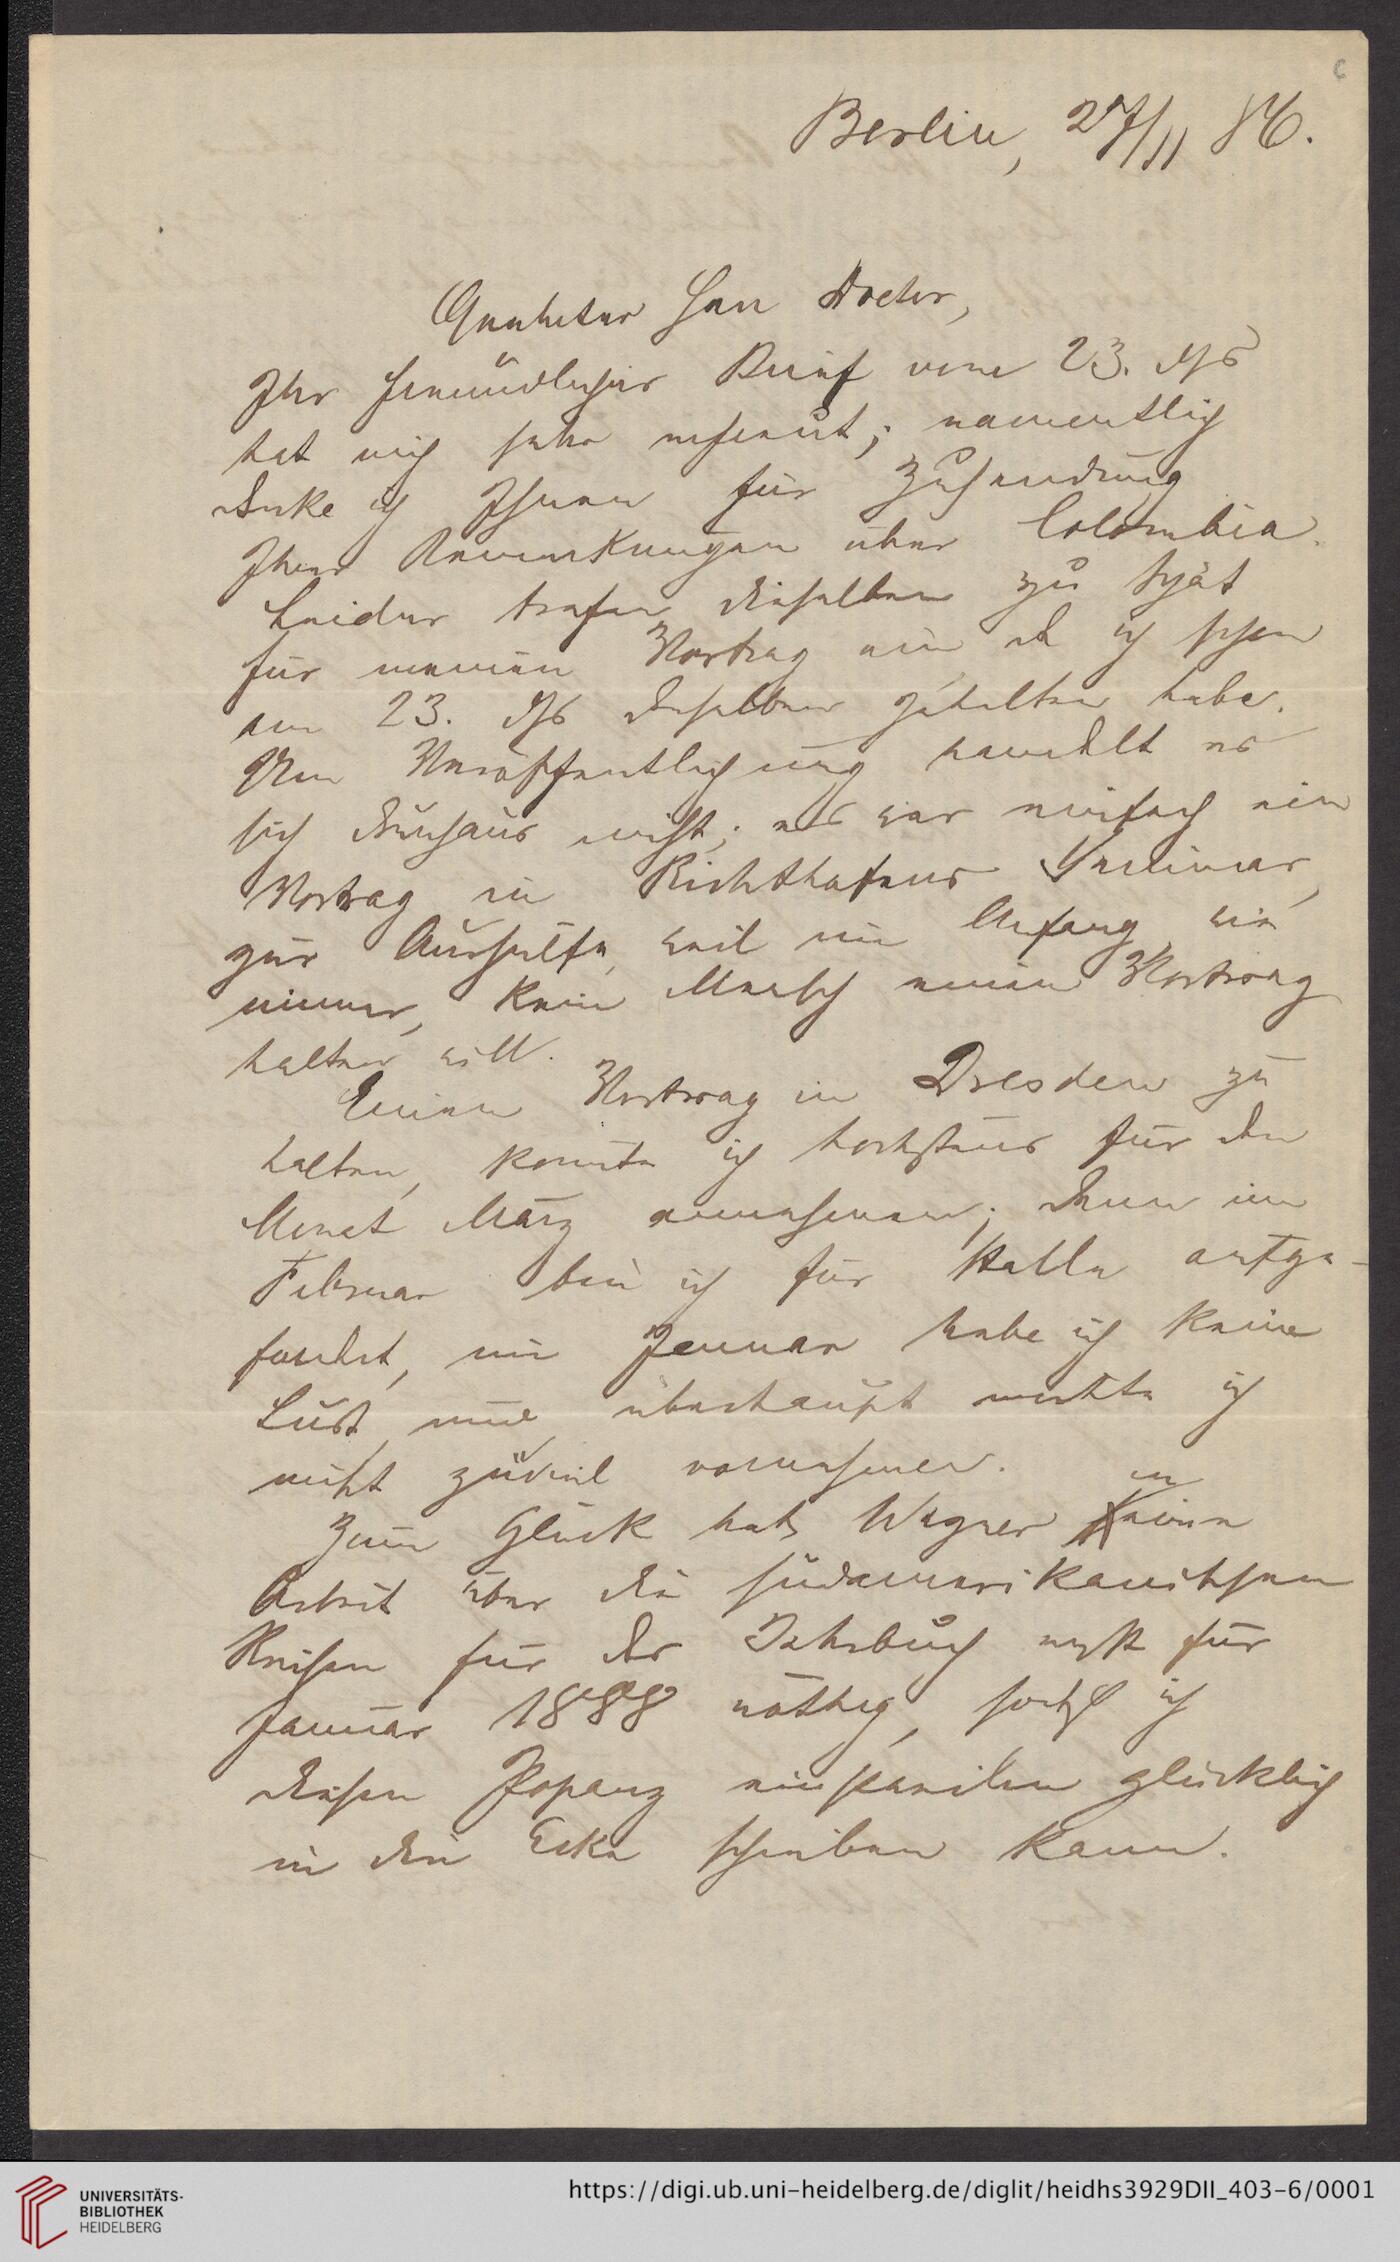 6
Berlin, 27/11 86.
Geehrter Herr Doctor,
Ihr freundlicher Brief vom 23. ds
hat mich sehr erfreut; namentlich
danke ich Ihnen für Zusendung
Ihrer Bemerkungen über Colombia.
Leider trafen dieselben zu spät
für meinen Vortrag ein, da ich schon
am 23. ds denselben gehalten habe.
Um Veröffentlichung handelt es
sich durchaus nicht; es war einfach ein
Vortrag in Richthofens Seminar,
zur Aushülfe, weil im Anfang wie
immer, kein Mensch einen Vortrag
halten will.
Einen Vortrag in Dresden zu
halten, könnte ich höchstens für den
Monat März annehmen; denn im
Februar bin ich für Halle aufge-
fordert, im Januar habe ich keine
Lust, und überhaupt möchte ich
nicht zuviel vornehmen.
Zum Glück hat Wagner meine
Arbeit über die südamerikanischen
Reisen für das Jahrbuch erst für
Januar 1888 nöthig, so daß ich
diesen Popanz einstweilen glücklich
in die Ecke schieben kann.
UNIVERSITÄTS-
BIBLIOTHEK
HEIDELBERG
https://digi.ub.uni-heidelberg.de/diglit/heidhs3929DII_403-6/0001